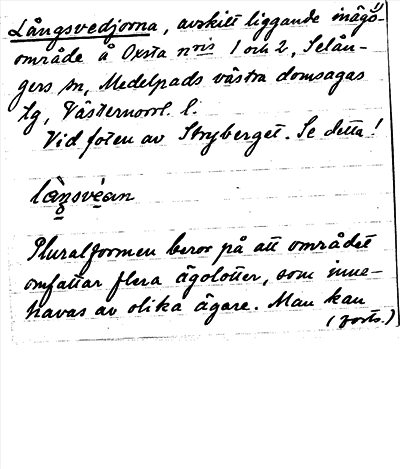 Långsvedjorna, avskilt liggande inägo-
område å Oxsta nris 1 och 2, Selån-
gers sn, Medelpads västra domsagas
tg, Västernorrl. l.
Vid foten av Stryberget. Se detta!
làŋsvéan
Pluralformen beror på att området
omfattar flera ägolotter, som inne-
havas av olika ägare. Man kan
(forts.)